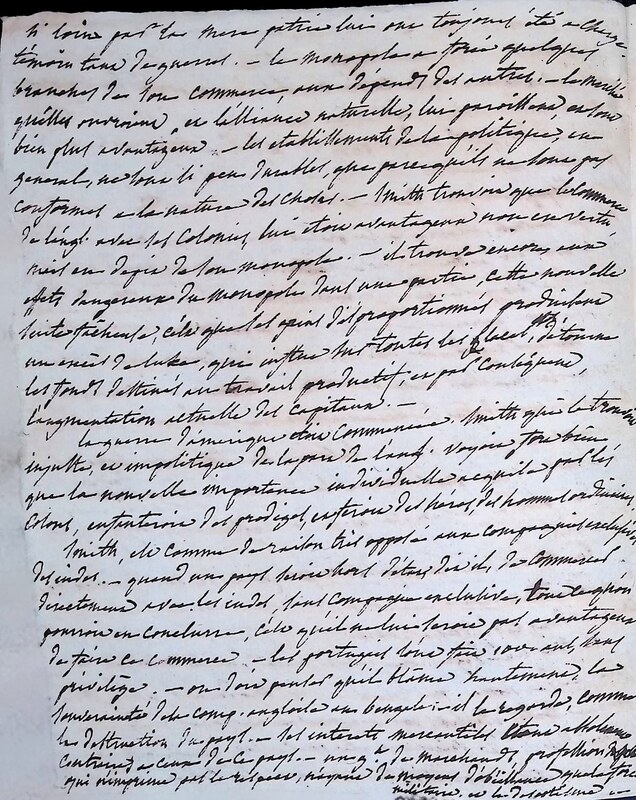 si loin par la mere patrie lui ont toujours été a charge
témoin tant de guerres. – le monopole a forcé quelques
branches de son commerce, aux dépends des autres. – le marché
qu'elles ouvriroient, et l'alliance naturelle, lui paroissent, en tout
bien plus avantageux. – les etablissements de la politique, en
general, ne sont si peu durables, que parcequ'ils ne sont pas
conformes a la nature des choses. – Smith trouvoit que le commerce
de l'angl. avec ses Colonies, lui etoit avantageux non en vertu
mais en dépit de son monopole. – il trouve encore aux
effets dangereux du monopole dans une partie, cette nouvelle
suite facheuse, c'est que les gains disproportionnés produisent
un excès de luxe, qui influe sur toutes les places, détourne
les fonds destinés au travail productif, et par conséquent,
l'augmentation actuelle des capitaux. –
la guerre d'amerique etoit commencée. Smith qui la trouvoit
injuste, et impolitique de la part de l'angl. voyoit fort bien
que la nouvelle importance individuelle acquise par les
Colons, enfanteroit des prodiges, et feroit des héros, des hommes ordinaires.
Smith, est comme de raison très opposé aux compagnies exclusives
des indes. – quand un pays seroit hors d'état dit-il, de commercer
directement avec les indes, sans compagnie exclusive, tout ce qu'on
pourroit en conclure, c'est qu'il ne lui seroit pas avantageux
de faire ce commerce. – les portugais l'ont fait 100 ans, sans
privilège. – on doit penser qu'il blâme hautement, la
souveraineté de la comp. angloise au bengale: – il la regarde, comme
la destruction du pays. – ses interets mercantiles etant absolument
contraires a ceux de ce pays. – un de marchands, profession
qui n'imprime pas le respect, n'ayant de moyens d'obéissance que la force
militaire, et le despotisme –